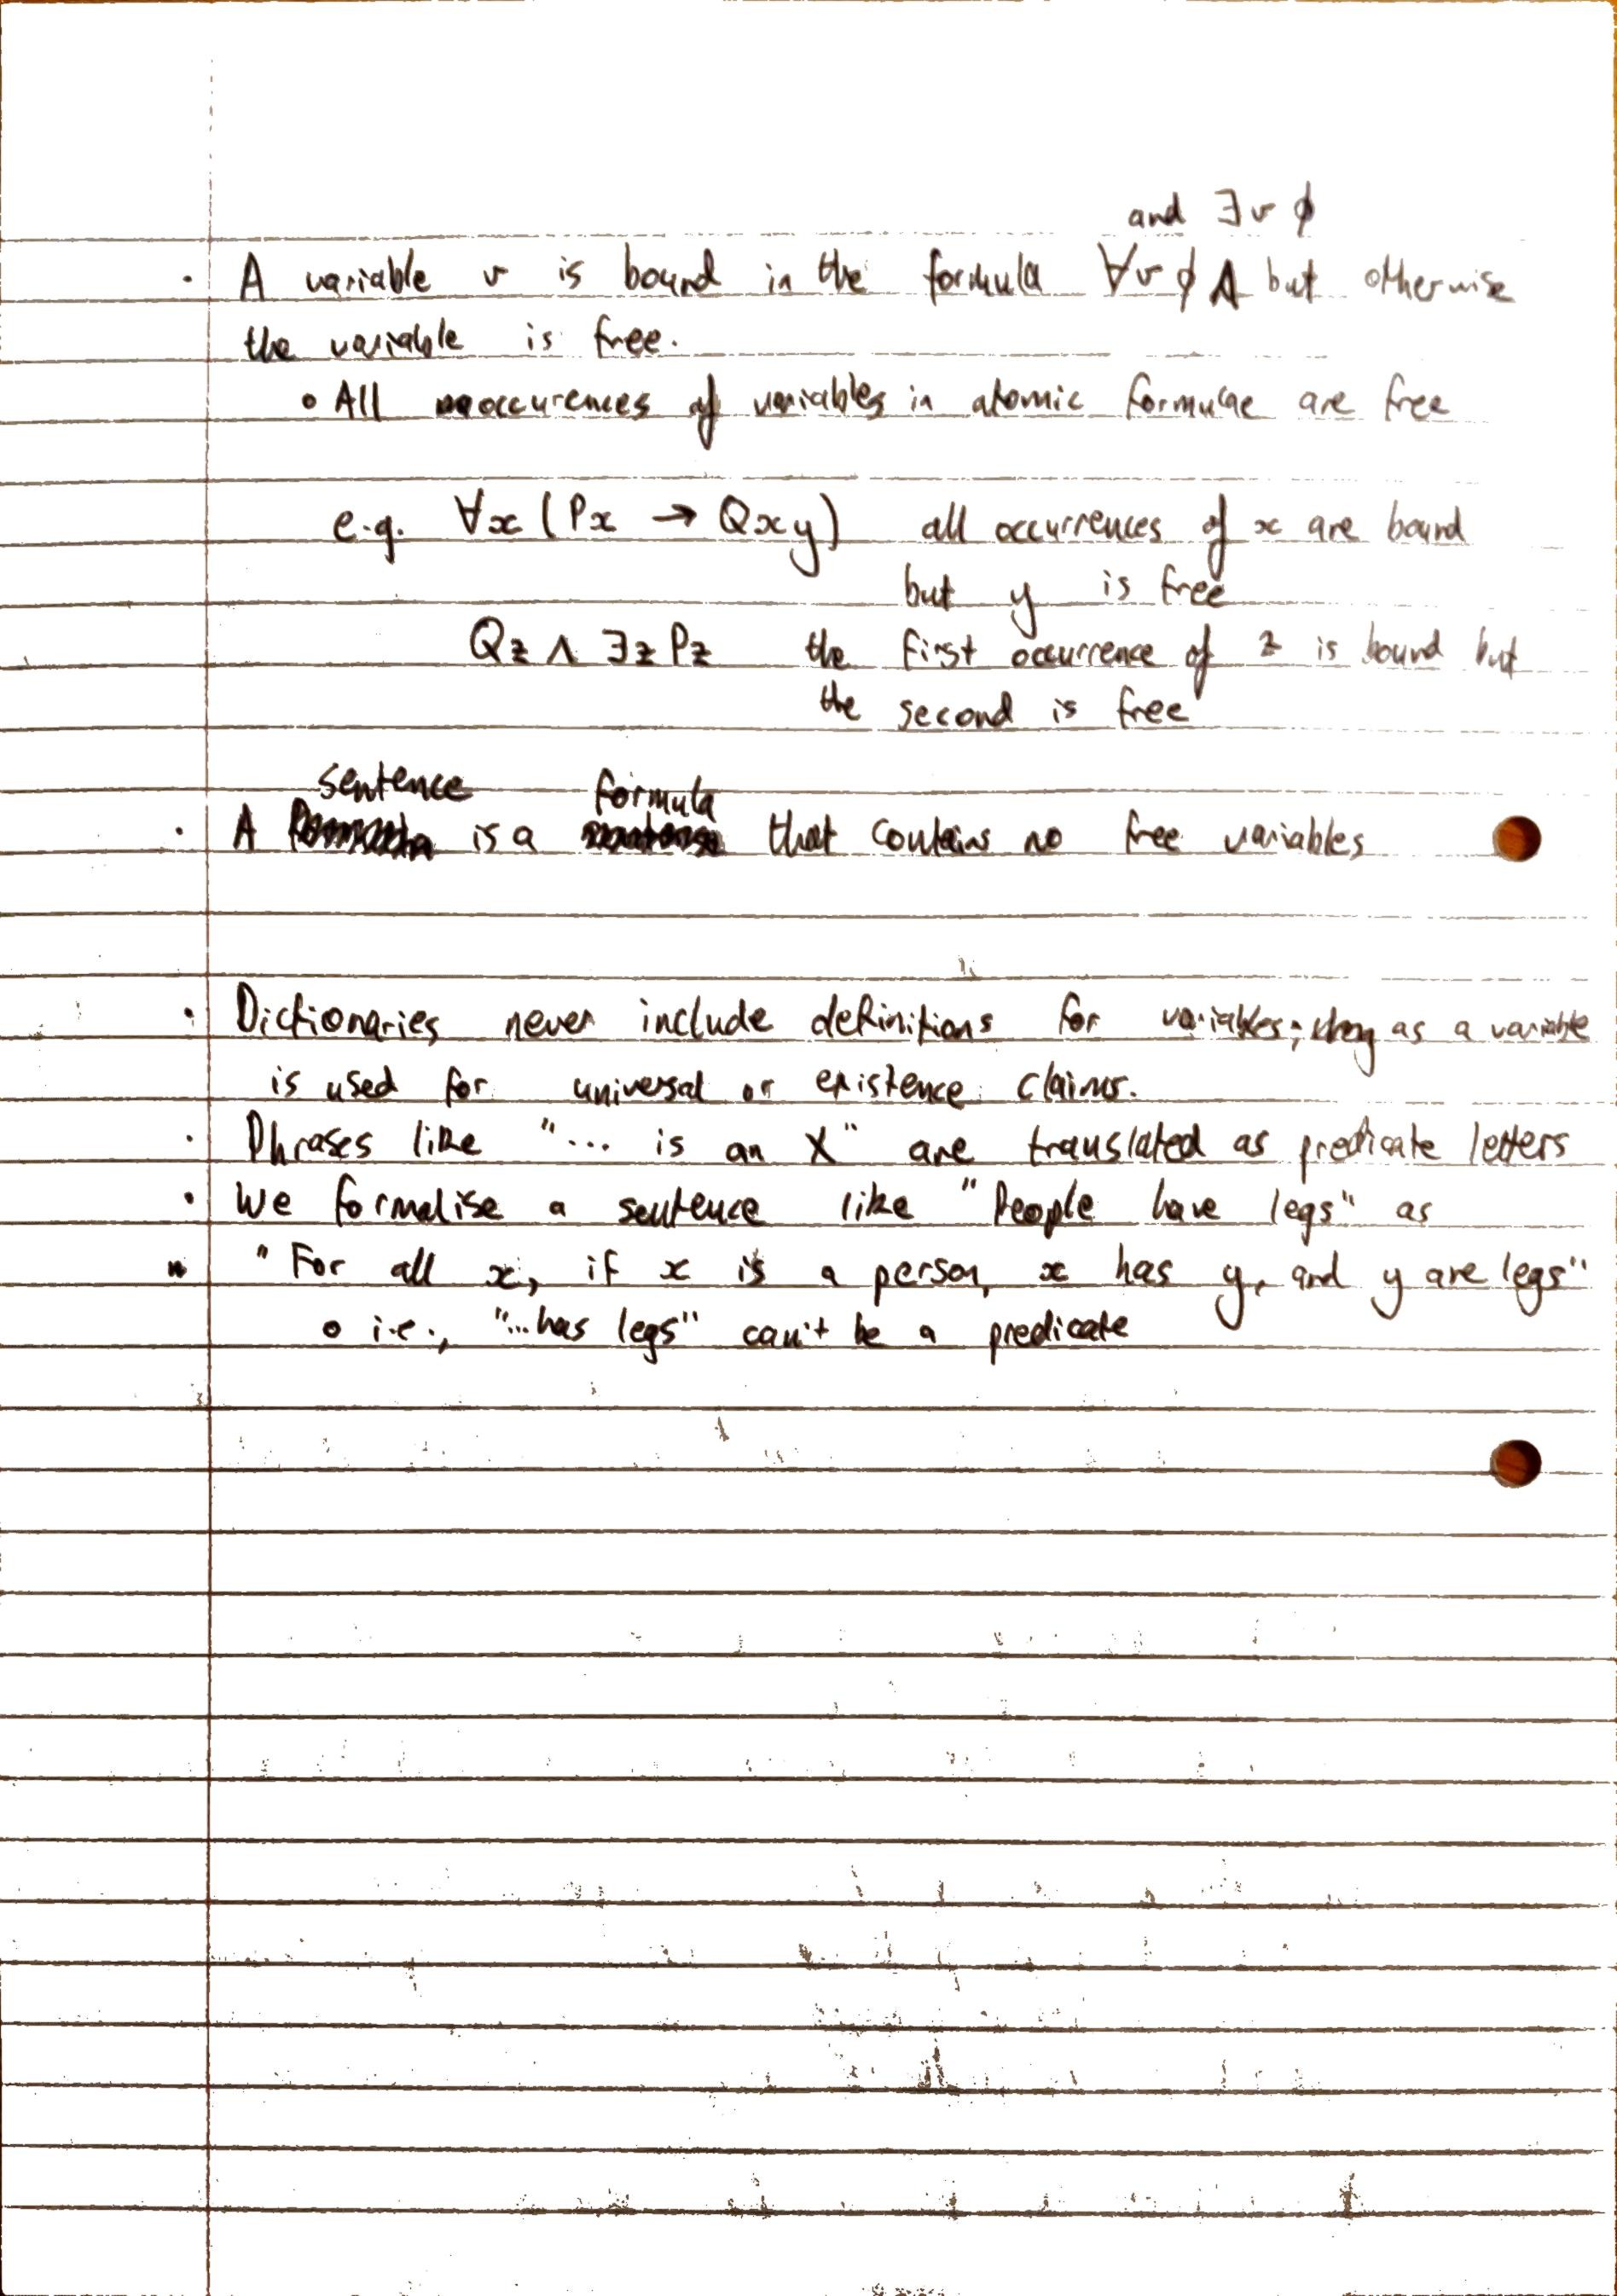 and ∃v ϕ
· A variable v is bound in the formula ∀v ϕ ⋀ but otherwise
the variable is free.
∘ All occurences of variables in atomic formulae are free
e.g. ∀x (Px → Qxy) all occurrences of x are bound
but y is free
Qz ∧ ∃z Pz the first occurrence of z is bound but
the second is free
sentence formula
· A is a that contains no free variables
· Dictionaries never include definitions for variables; as a variable
is used for universal or existence claims.
· Phrases like "... is an X" are translated as predicate letters
· We formalise a sentence like "People have legs" as
"For all x, if x is a person, x has y, and y are legs"
∘ i.e., "...has legs" can't be a predicate